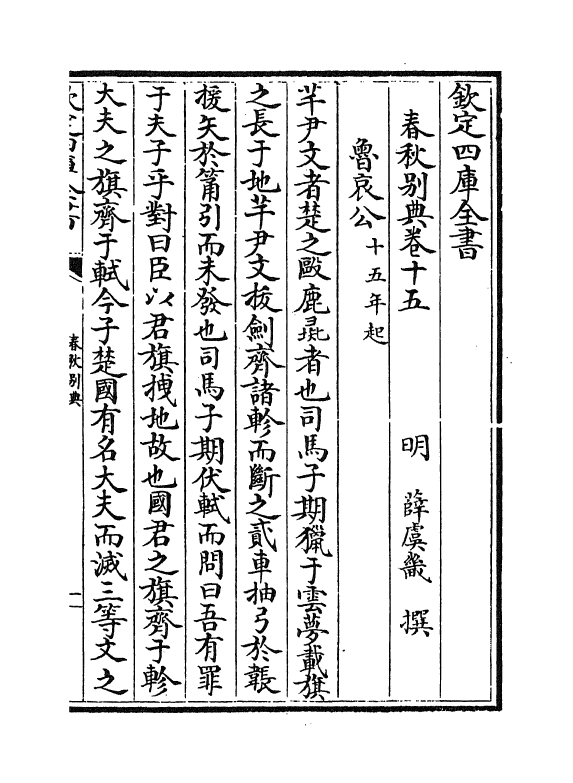 欽定四庫全書
春秋别典卷十五　　　明　薛虞畿　撰
魯哀公十五年起
芊尹文者楚之歐鹿彘者也司馬子期獵于雲夢載旗
之長于地芊尹文拔劍齊諸軫而斷之貳車抽弓於韔
援矢於筩引而未發也司馬子期伏軾而問曰吾有罪
于夫子乎對曰臣以君旗拽地故也國君之旗齊于軫
大夫之旗齊于軾今子楚國有名大夫而滅三等文之
春秋别典